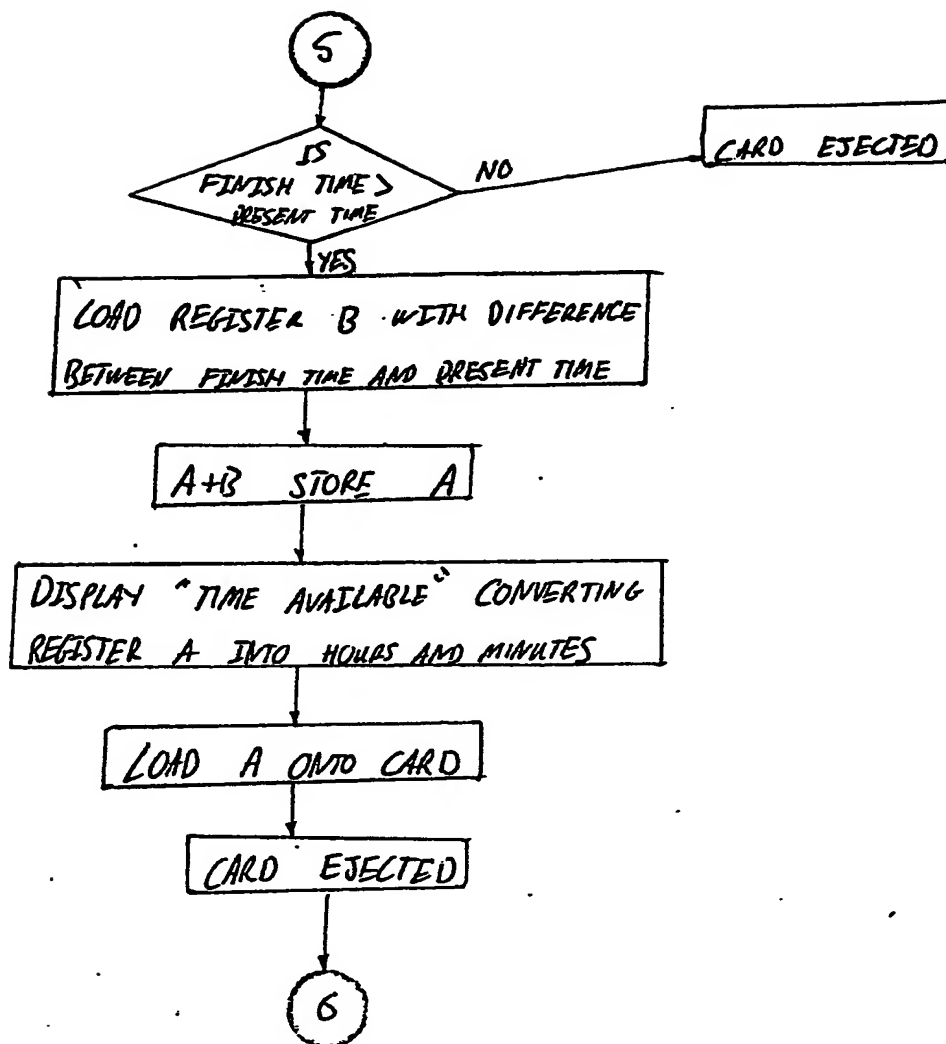 5
IS
FINISH TIME >
PRESENT TIME
NO
CARD EJECTED
YES
LOAD REGISTER B WITH DIFFERENCE
BETWEEN FINISH TIME AND PRESENT TIME
A+B STORE A
DISPLAY "TIME AVAILABLE" CONVERTING
REGISTER A INTO HOURS AND MINUTES
LOAD A ONTO CARD
CARD EJECTED
6